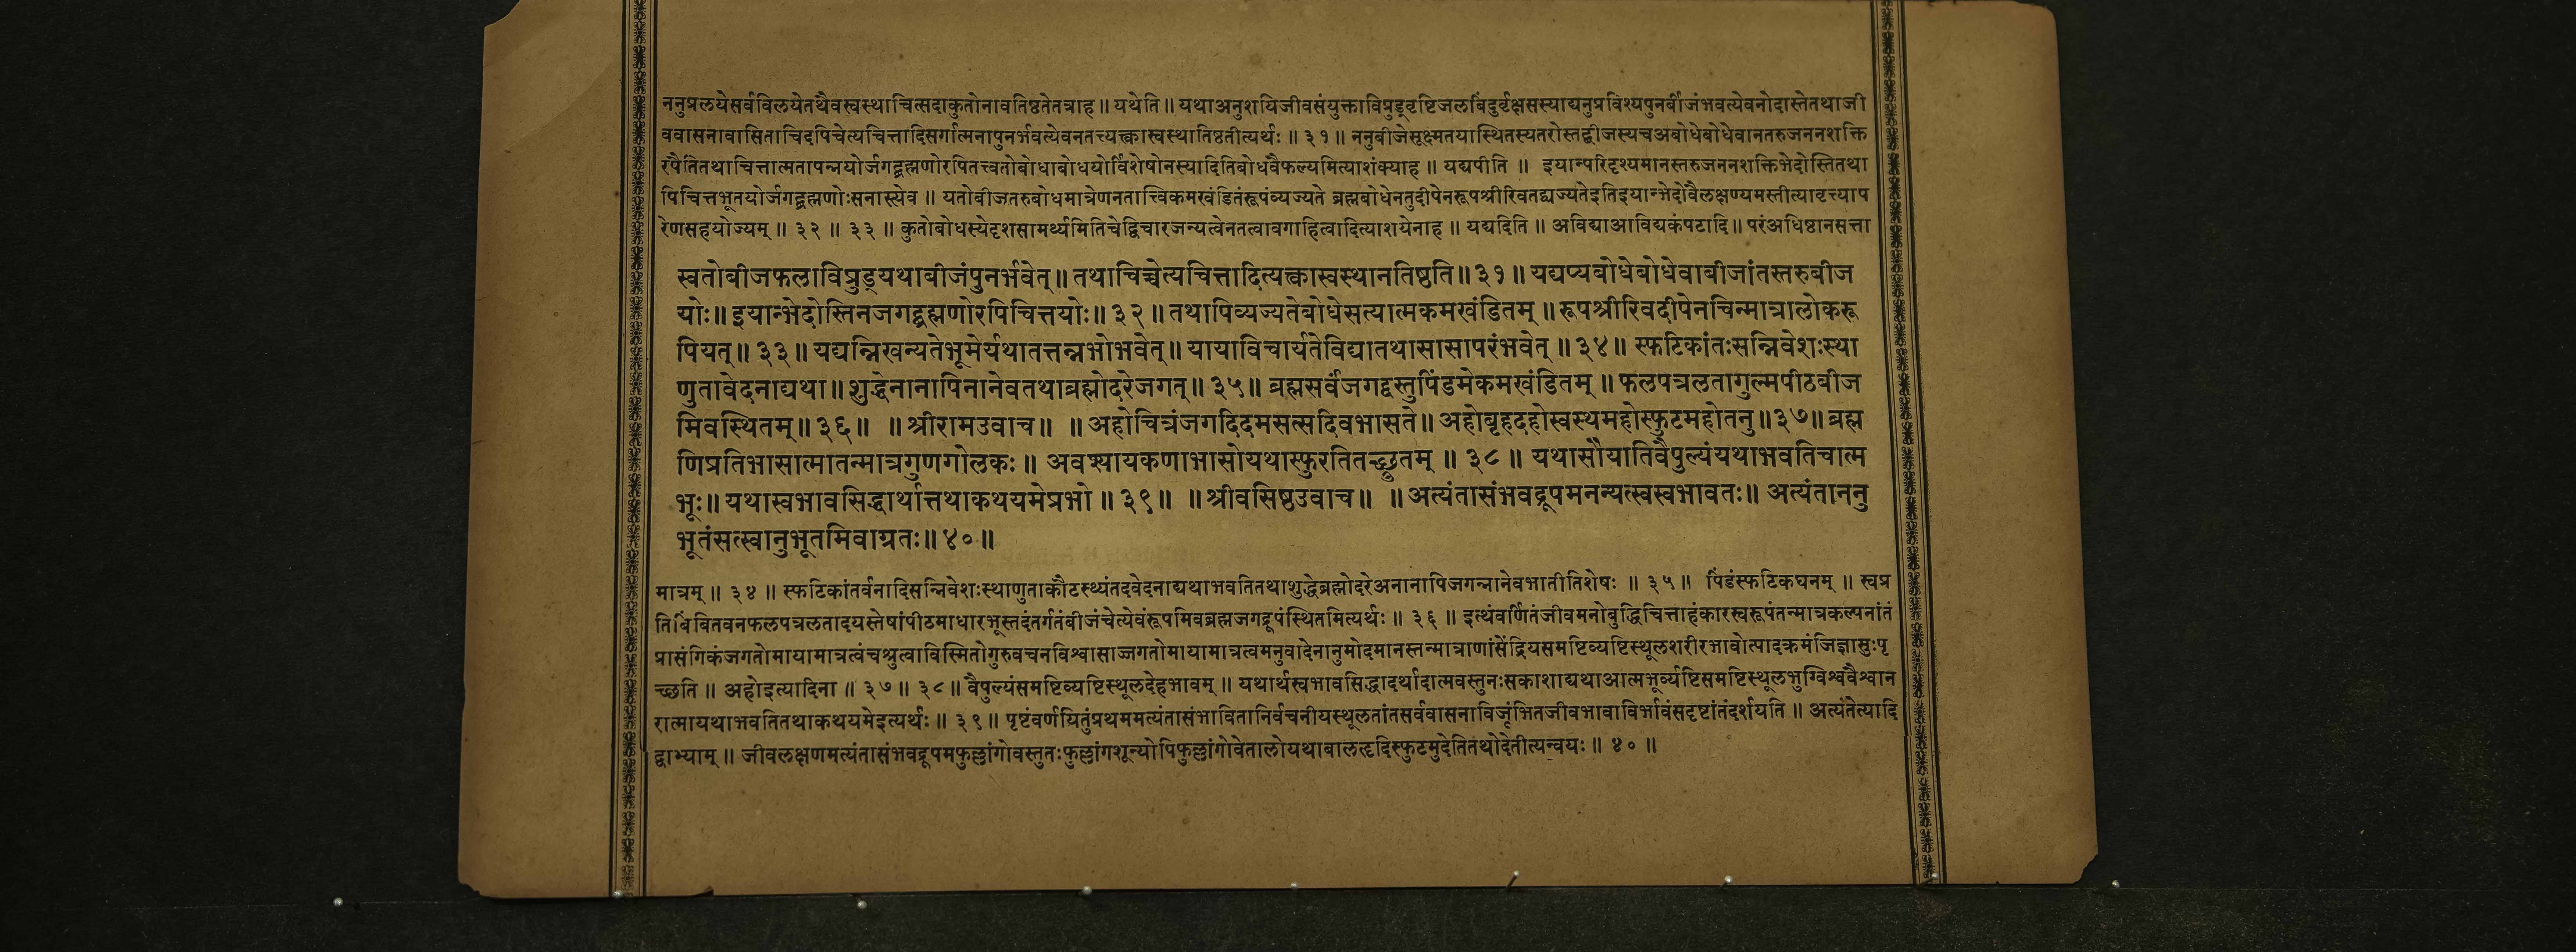 ननुप्रलयेसर्वविलयेतथैवस्वस्थाचित्सदाकुतोनावतिष्ठतेतत्राह ॥ यथेति ॥ यथाअनुशयिजीवसंयुक्ताविप्रुड्वृष्टिजलबिंदुर्वृक्षसस्याद्यनुप्रविश्यपुनर्बीजंभवत्येवनोदास्तेतथाजी
ववासनावासिताचिदपिचेत्यचित्तादिसर्गात्मनापुनर्भवत्येवनतत्त्यक्त्वास्वस्थातिष्ठतीत्यर्थः ॥ ३१ ॥ ननुबीजेसूक्ष्मतयास्थितस्यतरोस्तद्बीजस्यचअबोधेबोधेवानतरुजननशक्ति
रपैतितथाचित्तात्मतापन्नयोर्जगद्ब्रह्मणोरपितत्त्वतोबोधाबोधयोर्विशेषोनस्यादितिबोधवैफल्यमित्याशंक्याह ॥ यद्यपीति ॥ इयान्परिदृश्यमानस्तरुजननशक्तिभेदोस्तितथा
पिचित्तभूतयोर्जगद्ब्रह्मणोःसनास्त्येव ॥ यतोबीजतरुबोधमात्रेणनतात्त्विकमखंडितंरूपंव्यज्यते ब्रह्मबोधेनतुदीपेनरूपश्रीरिवतद्व्यज्यतेइतिइयान्भेदोवैलक्षण्यमस्तीत्यावृत्त्याप
रेणसहयोज्यम् ॥ ३२ ॥ ३३ ॥ कुतोबोधस्येदृशसामर्थ्यमितिचेद्विचारजन्यत्वेनतत्वावगाहित्वादित्याशयेनाह ॥ यद्यदिति ॥ अविद्याआविद्यकंपटादि ॥ परंअधिष्ठानसत्ता
स्वतोबीजफलाविप्रुड्यथाबीजंपुनर्भवेत् ॥ तथाचिच्चेत्यचित्तादित्यक्त्वास्वस्थानतिष्ठति ॥ ३१ ॥ यद्यप्यबोधेबोधेवाबीजांतस्तरुबीज
योः ॥ इयान्भेदोस्तिनजगद्ब्रह्मणोरपिचित्तयोः ॥ ३२ ॥ तथापिव्यज्यतेबोधेसत्यात्मकमखंडितम् ॥ रूपश्रीरिवदीपेनचिन्मात्रालोकरू
पियत् ॥ ३३ ॥ यद्यन्निखन्यतेभूमेर्यथातत्तन्नभोभवेत् ॥ यायाविचार्यतेविद्यातथासासापरंभवेत् ॥ ३४ ॥ स्फटिकांतःसन्निवेशःस्था
णुतावेदनाद्यथा ॥ शुद्धेनानापिनानेवतथाब्रह्मोदरेजगत् ॥ ३५ ॥ ब्रह्मसर्वंजगद्वस्तुपिंडमेकमखंडितम् ॥ फलपत्रलतागुल्मपीठबीज
मिवस्थितम् ॥ ३६ ॥ ॥ श्रीरामउवाच ॥ ॥ अहोचित्रंजगदिदमसत्सदिवभासते ॥ अहोबृहदहोस्वस्थमहोस्फुटमहोतनु ॥ ३७ ॥ ब्रह्म
णिप्रतिभासात्मातन्मात्रगुणगोलकः ॥ अवश्यायकणाभासोयथास्फुरतितच्छ्रुतम् ॥ ३८ ॥ यथासौयातिवैपुल्यंयथाभवतिचात्म
भूः ॥ यथास्वभावसिद्धार्थात्तथाकथयमेप्रभो ॥ ३९ ॥ ॥ श्रीवसिष्ठउवाच ॥ ॥ अत्यंतासंभवद्रूपमनन्यत्स्वस्वभावतः ॥ अत्यंताननु
भूतंसत्स्वानुभूतमिवाग्रतः ॥ ४० ॥
मात्रम् ॥ ३४ ॥ स्फटिकांतर्वनादिसन्निवेशःस्थाणुताकौटस्थ्यंतदवेदनाद्यथाभवतितथाशुद्धेब्रह्मोदरेअनानापिजगन्नानेवभातीतिशेषः ॥ ३५ ॥ पिंडंस्फटिकघनम् ॥ स्वप्र
तिबिंबितवनफलपत्रलतादयस्तेषांपीठमाधारभूस्तदंतर्गतंबीजंचेत्येवंरूपमिवब्रह्मजगद्रूपंस्थितमित्यर्थः ॥ ३६ ॥ इत्थंवर्णितंजीवमनोबुद्धिचित्ताहंकारस्वरूपंतन्मात्रकल्पनांतं
प्रासंगिकंजगतोमायामात्रत्वंचश्रुत्वाविस्मितोगुरुवचनविश्वासाज्जगतोमायामात्रत्वमनुवादेनानुमोदमानस्तन्मात्राणांसेंद्रियसमष्टिव्यष्टिस्थूलशरीरभावोत्पादक्रमंजिज्ञासुःपृ
च्छति ॥ अहोइत्यादिना ॥ ३७ ॥ ३८ ॥ वैपुल्यंसमष्टिव्यष्टिस्थूलदेहभावम् ॥ यथार्थस्वभावसिद्धादर्थादात्मवस्तुनःसकाशाद्यथाआत्मभूर्व्यष्टिसमष्टिस्थूलभुग्विश्ववैश्वान
रात्मायथाभवतितथाकथयमेइत्यर्थः ॥ ३९ ॥ पृष्टंवर्णयितुंप्रथममत्यंतासंभावितानिर्वचनीयस्थूलतांतसर्ववासनाविजृंभितजीवभावाविर्भावंसदृष्टांतंदर्शयति ॥ अत्यंतेत्यादि
द्वाभ्याम् ॥ जीवलक्षणमत्यंतासंभवद्रूपमफुल्लांगोवस्तुतःफुल्लांगशून्योपिफुल्लांगोवेतालोयथाबालहृदिस्फुटमुदेतितथोदेतीत्यन्वयः ॥ ४० ॥